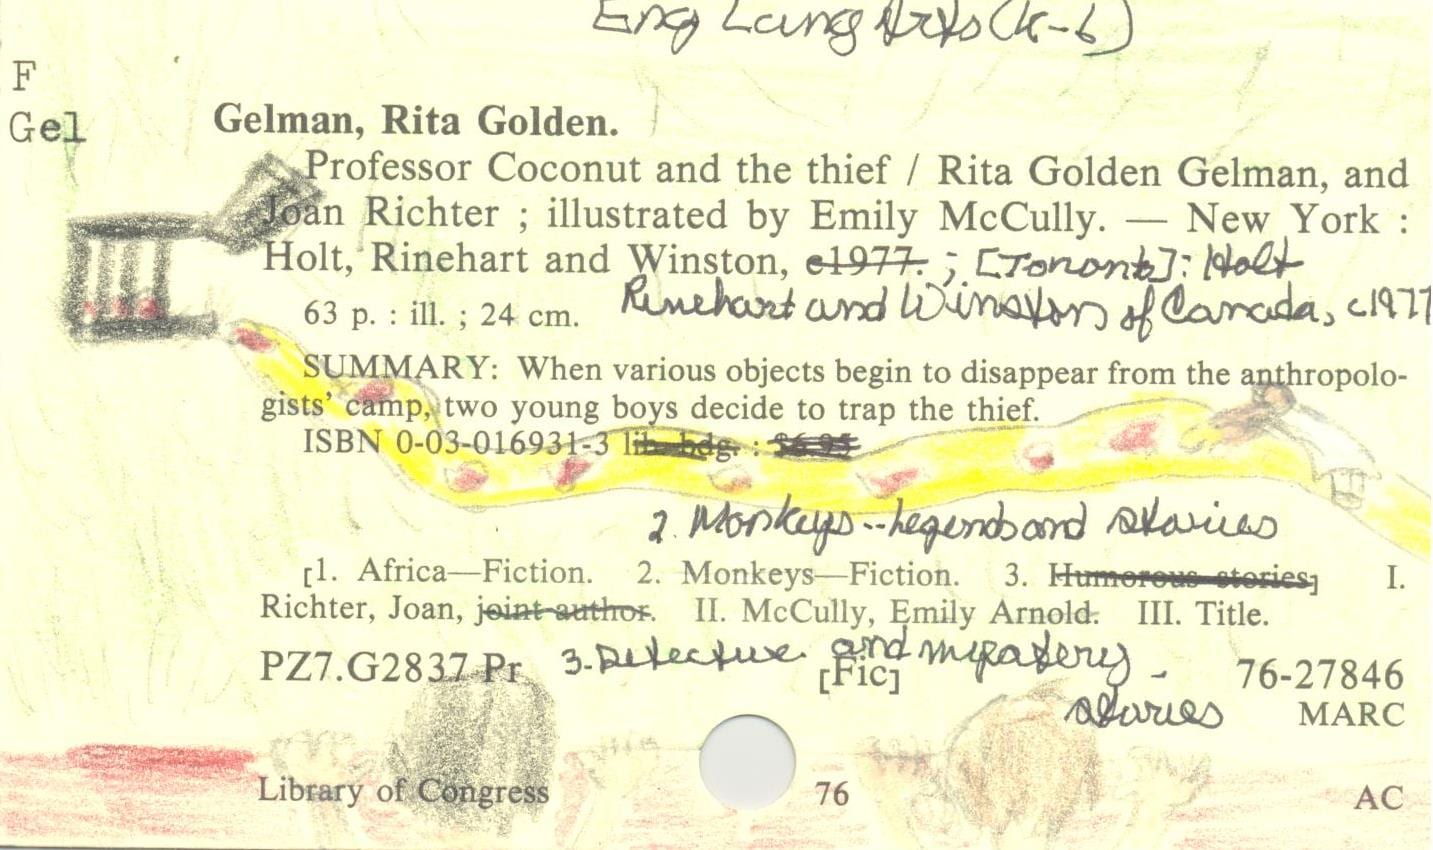 Eng Lang Arts (K-6)
F
Gel
Gelman, Rita Golden.
Professor Coconut and the thief / Rita Golden Gelman, and
Joan Richter ; illustrated by Emily McCully. — New York :
Holt, Rinehart and Winston, c1977. ; [Toronto]: Holt
Rinehart and Winston of Canada, c1977
63 p. : ill. ; 24 cm.
SUMMARY: When various objects begin to disappear from the anthropolo-
gists' camp, two young boys decide to trap the thief.
ISBN 0-03-016931-3 lib. bdg. : $6.95
2. Monkeys--Legends and stories
[1. Africa—Fiction. 2. Monkeys—Fiction. 3. Humorous stories] I.
Richter, Joan, joint author. II. McCully, Emily Arnold. III. Title.
3. Detective and mystery
PZ7.G2837 Pr [Fic] 76-27846
stories MARC
Library of Congress 76 AC